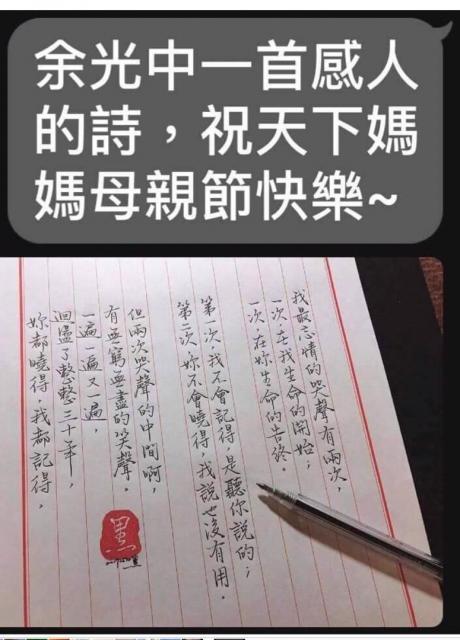 余光中一首感人
的詩,祝天下媽
媽母親節快樂~
我最忘情的哭聲有兩次,
一次,在我生命的開始;
一次,在妳生命的告終。
第一次,我不會記得,是聽你說的;
第二次,妳不會曉得,我說也沒有用。
但兩次哭聲的中間啊,
有無窮無盡的笑聲。
一遍一遍又一遍,
迴盪了整整三十年,
妳都曉得,我都記得。